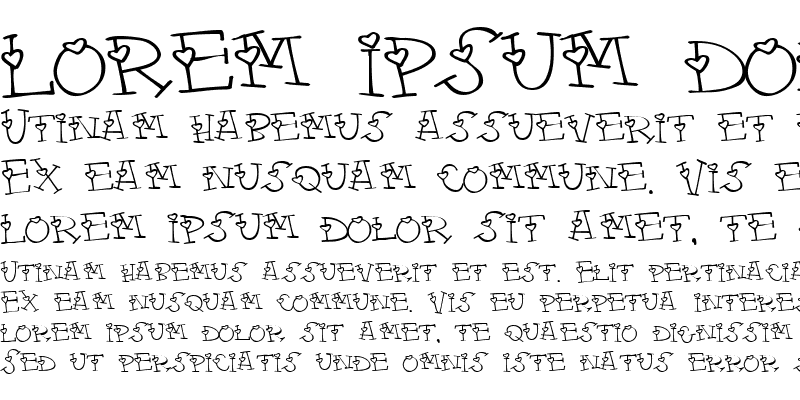 LOREM IPSUM DO
UTINAM HABEMUS ASSUEVERIT ET
EX EAM NUSQUAM COMMUNE. VIS E
LOREM IPSUM DOLOR SIT AMET, TE
UTINAM HABEMUS ASSUEVERIT ET EST. ELIT PERTINACIA
EX EAM NUSQUAM COMMUNE. VIS EU PERPETUA INTERES
LOREM IPSUM DOLOR SIT AMET, TE QUAESTIO DIGNISSIM
SED UT PERSPICIATIS UNDE OMNIS ISTE NATUS ERROR